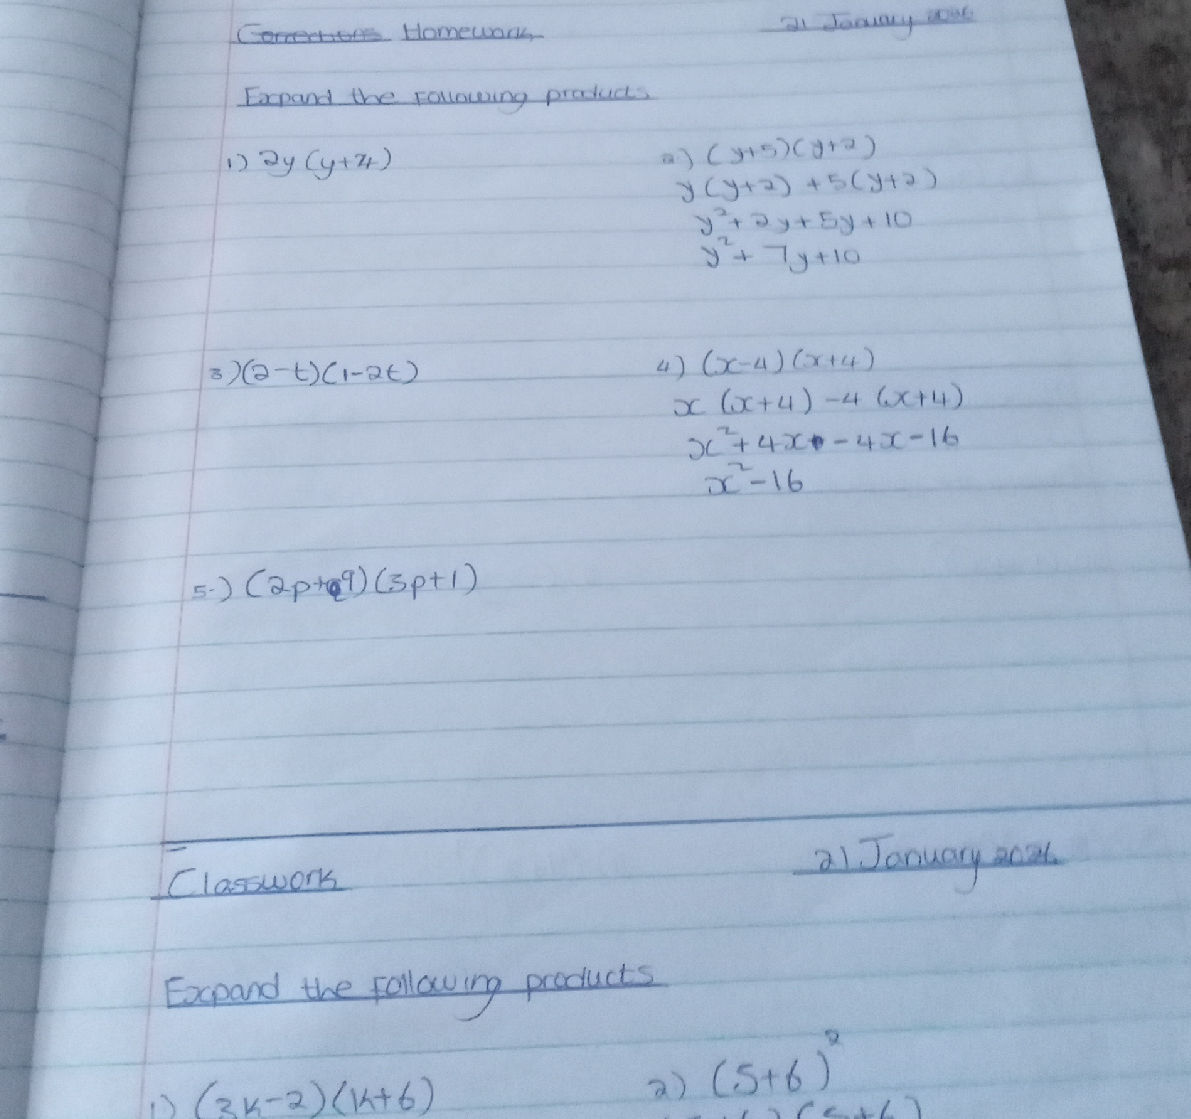 Corrections Homework
21 January 2026
Expand the following products
1) 2y (y+4)
2) (y+5)(y+2)
y(y+2) +5(y+2)
y²+2y+5y+10
y²+7y+10
3) (2-t)(1-2t)
4) (x-4)(x+4)
x (x+4) -4 (x+4)
x²+4x-4x-16
x²-16
5.) (2p+q)(3p+1)
Classwork
21 January 2026
Expand the following products
1) (3k-2)(k+6)
2) (5+6)²